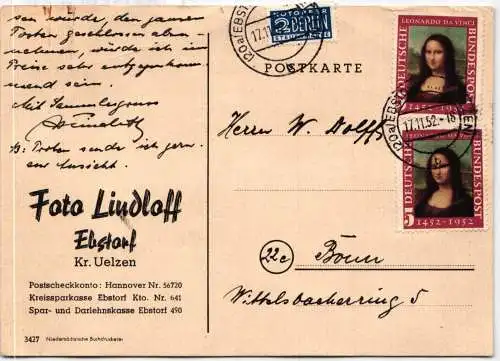 sen würde, den ganzen
Posten geschlossen abzu-
nehmen, würde ich im
Preise sehr entgegenkom-
mend sein.
Mit Sammlergruss
Posten sende ich gern
zur Ansicht.
Foto Lindloff
Ebstorf
Kr. Uelzen
Postscheckkonto: Hannover Nr. 56720
Kreissparkasse Ebstorf Kto. Nr. 641
Spar- und Darlehnskasse Ebstorf 490
3427 Niedersächsische Buchdruckerei
NOTOPFER
2 BERLIN
STEUERMARKE
(20a) EBST
17.11.
POSTKARTE
LEONARDO DA VINCI
DEUTSCHE
BUNDESPOST
1452-1952
(20a) EBST
17.11.52.-18
DEUTSCHE
BUNDESPOST
5
1452-1952
Herrn W. Dolff
22c
Bonn
Wittelsbacherring 5